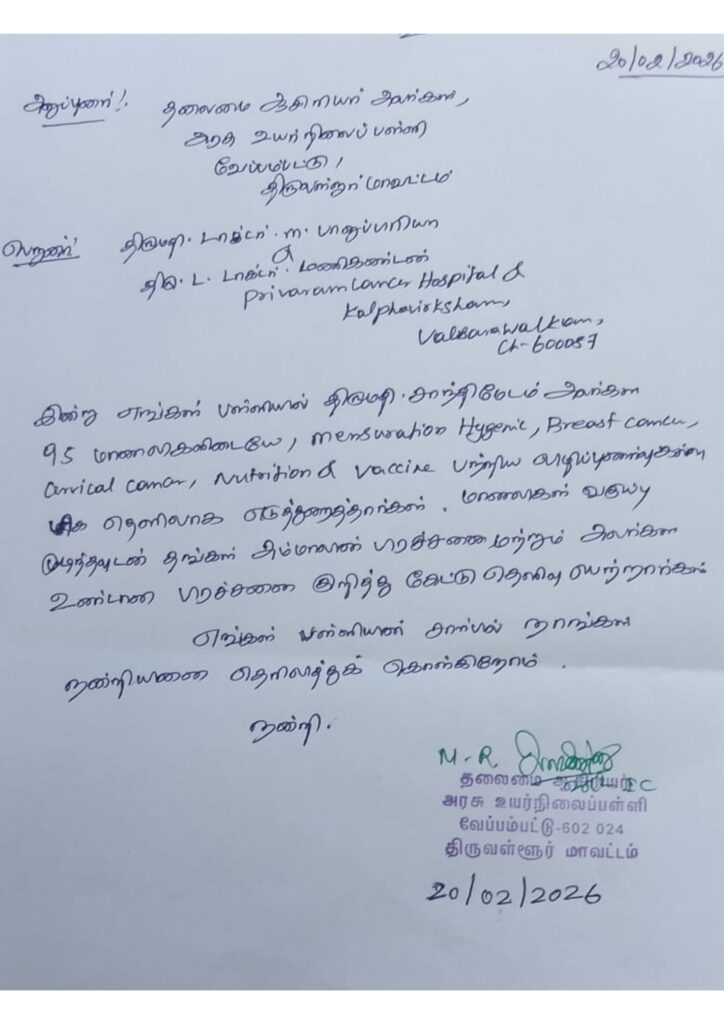 20/02/2026
அனுப்புனர்:. தலைமை ஆசிரியர் அவர்கள்,
அரசு உயர்நிலைப்பள்ளி
வேப்பம்பட்டு,
திருவள்ளூர் மாவட்டம்
பெறுனர் திருமதி. டாக்டர். m. பானுப்பிரியா
&
திரு. L. டாக்டர். மணிகண்டன்
Privaram Cancer Hospital &
Kalphavirksham,
Valsarawalkam,
Ch-600087
இன்று எங்கள் பள்ளியில் திருமதி. சாந்திமேடம் அவர்கள்
95 மாணவிகளிடையே, mensuration Hygenic, Breast cancer,
Cervical cancer, Nutrition & Vaccine பற்றிய விழிப்புணர்வுகளை
மிக தெளிவாக எடுத்துரைத்தார்கள். மாணவிகள் வகுப்பு
முடிந்தவுடன் தங்கள் அம்மாவின் பிரச்சனை மற்றும் அவர்கள்
உண்டான பிரச்சனை குறித்து கேட்டு தெளிவு பெற்றார்கள்.
எங்கள் பள்ளியின் சார்பில் நாங்கள்
நன்றியினை தெரிவித்துக் கொள்கிறோம்.
நன்றி.
M. R.
தலைமை ஆசிரியர்
அரசு உயர்நிலைப்பள்ளி
வேப்பம்பட்டு-602 024
திருவள்ளூர் மாவட்டம்
20/02/2026